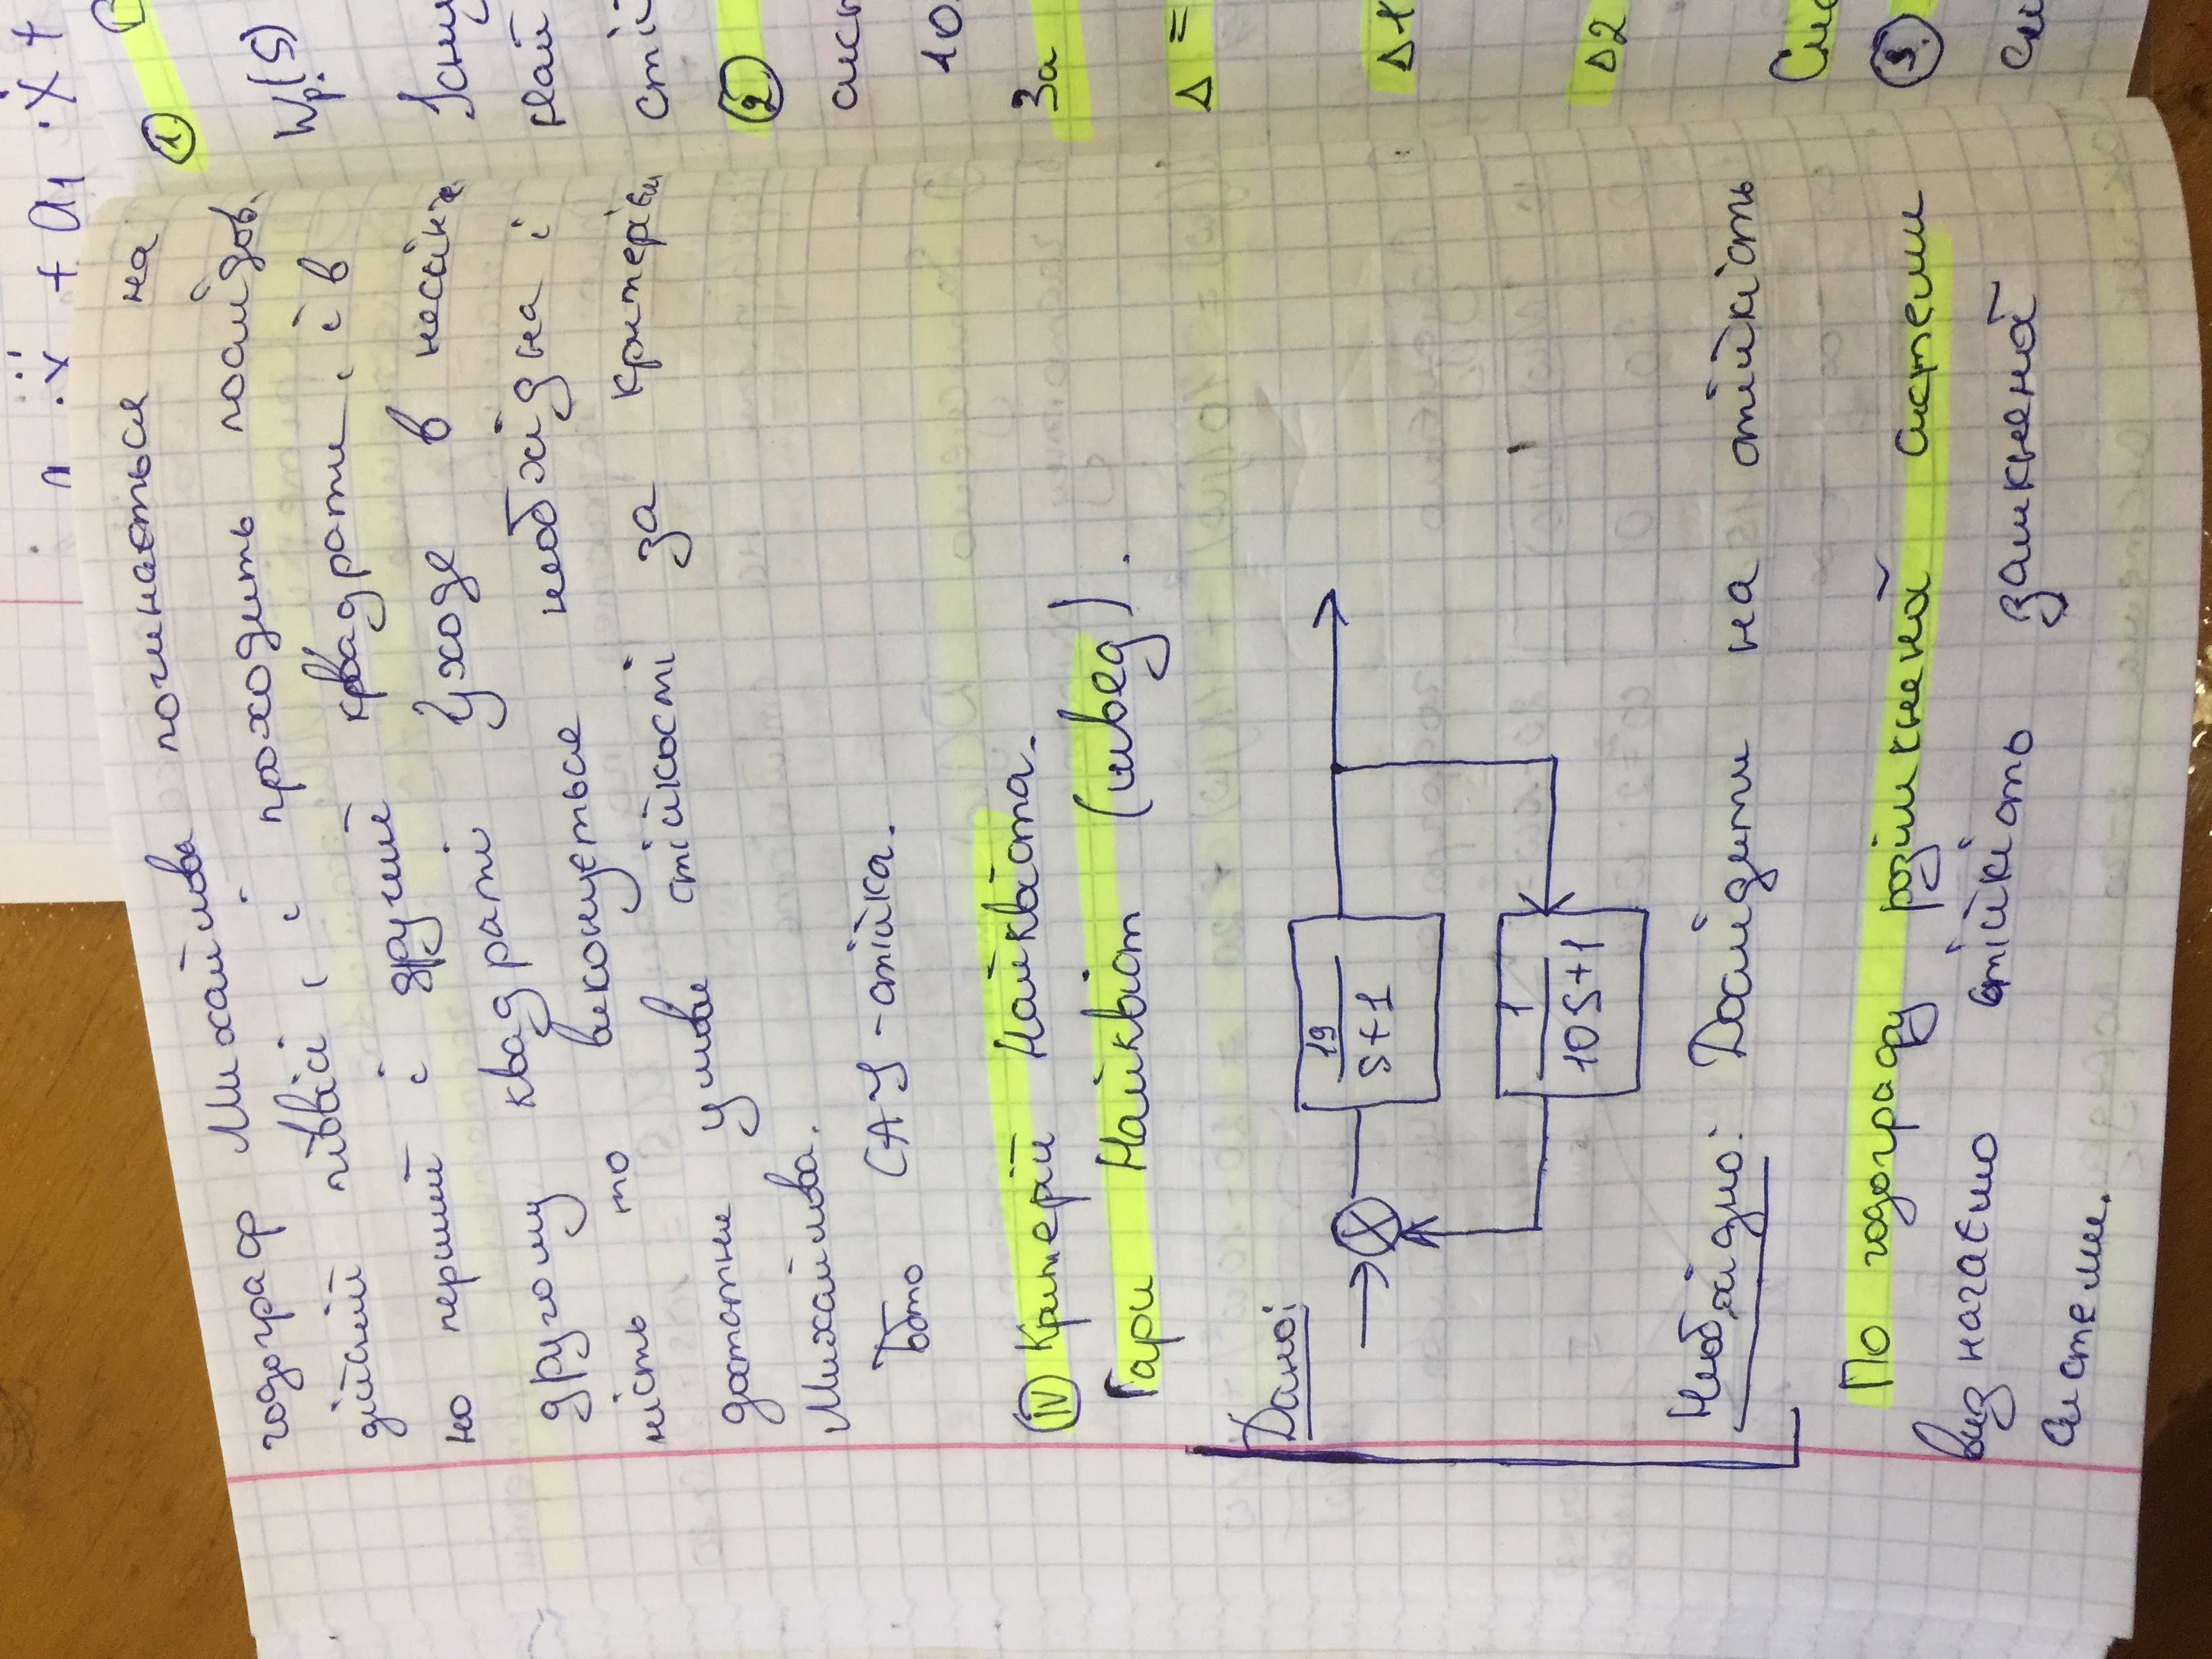 ·ẍ + a₁ ·ẋ +
годограф Михайлова починається на
дійсній піввісі, і проходить послідов.
но перший і другий квадрати, і в
другому квадраті уходе в нескінче
ність то виконується необхідна і
достатня умови стійкості за критерієм
Михайлова.
Тобто САУ - стійка.
IV Критерій Найквіста.
Гари Найквіст (швед).
Дано:
19
S+1
1
10S+1
Необхідно: Дослідити на стійкість
По годографу розімкненої системи
визначаємо стійкість замкненої
системи.
1.
Wp.(S)
Існу
най
стій
2.
сист
10.
За
Δ =
Δ1
Δ2
Сис
3.